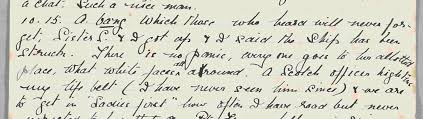 a chat. Such a nice man.
10.15. A bang which those who heard will never for-
get, Sister L. & I got up & I said the ship has been
struck. There is no panic, every one goes to her allotted
place, what white faces all around. A Scotch officer
my life belt (I have never seen him since) & we are
to get in "Ladies first" how often I have read but never